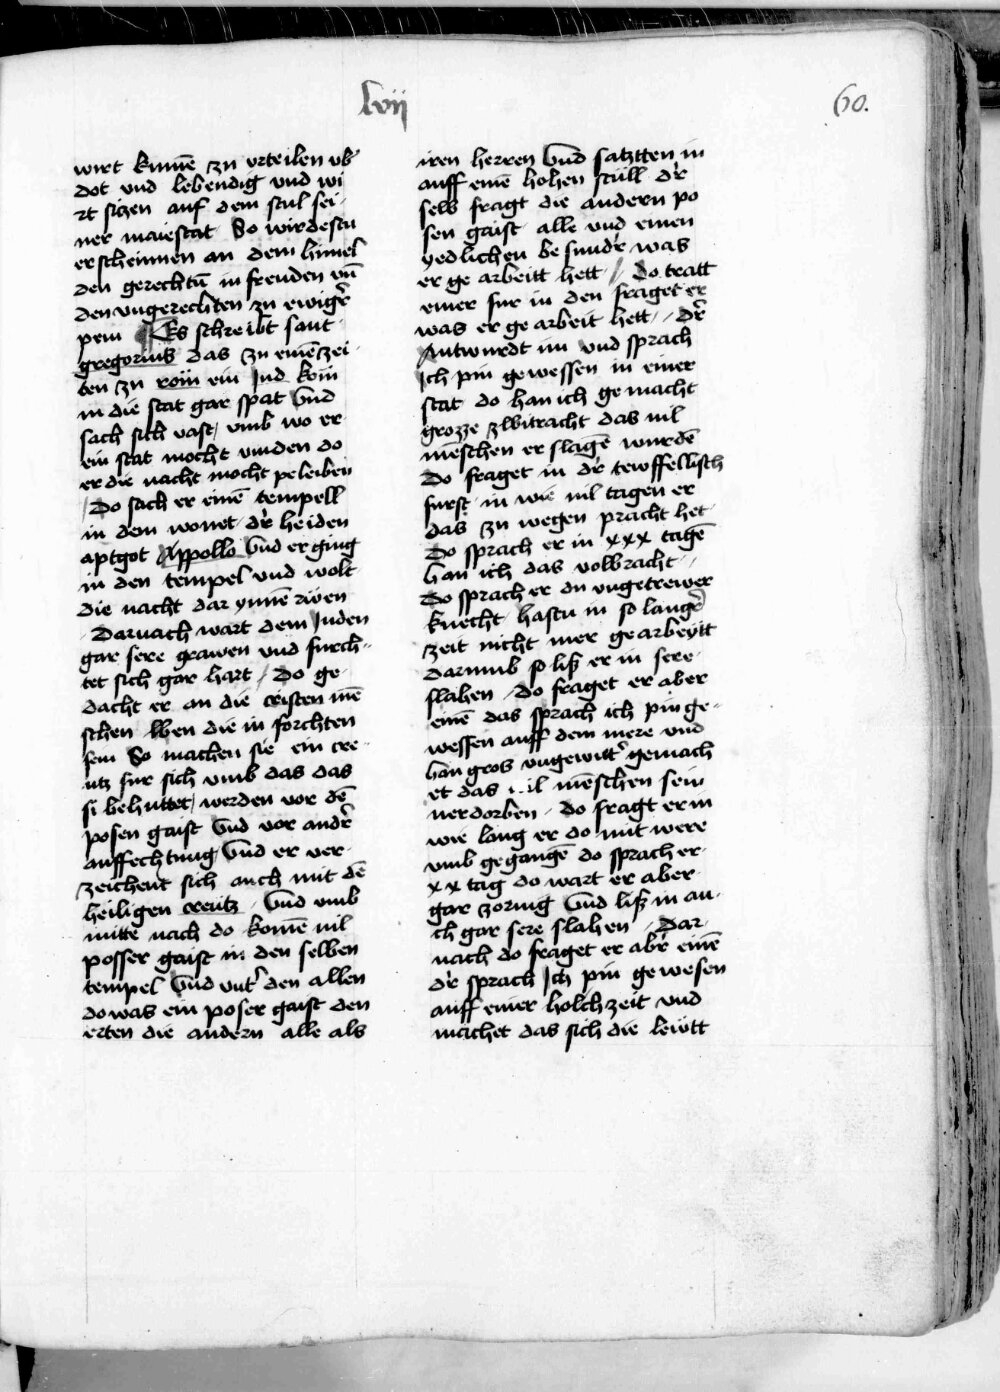 lvii
60.
wirt kumē zu vrteilen vb̕
dot vnd lebendig vnd wi
rt siczen auf dem stul sei-
ner maiestat So wirdestu
erscheinnen an dem himel
den gerechtū in freuden vn̄
den vngerechten zu ewig̕
pein ¶ Es schreibt sant
gregorius das zu einē zei-
ten zu rom ein Jud kom
in die stat gar spat Vnd
sach sich vast vmb wo er
ein stat mocht vinden do
er die nacht mocht peleiben
Do sach er einē tempell
in dem wonet dr̕ heiden
aptgot Appollo Vnd er ging
in den tempel vnd wolt
die nacht dar ynnē ruen
Darnach wart dem Juden
gar sere grawen vnd furch-
tet sich gar hart / Do ge-
dacht er an die cristen mē
schen wen die in forchten
sein So machen sie ein cre-
utz fur sich vmb das das
si behuttet werden vor dē
posen gaist Vnd vor andr̕
anffechtung Vnd er ver-
zeichent sich auch mit dē
heiligen creutz Vnd vmb
mitte nach do komē vil
posser gaist in den selben
tempel Vnd vnt̕ den allen
do was ein poser gaist den
erten die andern alle als
iren herren Vnd satztten in
auff einē hohen stull dr̕
selb fragt die andern po
sen gaist alle vnd einen
yedlichen be sundr̕ was
er ge arbeitt hett / Do tratt
einer fur in den fraget er
was er ge arbeit hett dr̕
Antwurdt im vnd sprach
Ich pin gewessen in einer
stat do han ich gemacht
grozze zwitracht das vil
mēschen er slagē wurdē
Do fraget in dr̕ tewffellisch
furst in wie vil tagen er
das zu wegen pracht het
Do sprach er in xxx tagē
han ich das volbracht
Do sprach er du vngetrewer
knecht hastu in so langer̕
zeit nicht mer gearbeytt
darumb so liß er in sere
slahen Do fraget er aber
einē das sprach ich pin ge-
wessen auff dem mere vnd
han gros vngewitt̕ gemach
et das vil mēschen sein
verdorben Do fragt er in
wie lang er do mit were
vmb gegangē do sprach er
xx tag do wart er aber
gar zornig Vnd liß in au-
ch gar sere slahen Dar
nach do fraget er abr̕ einē
dr̕ sprach Ich pin gewesen
auff einer holchzeit vnd
machet das sich die lewtt